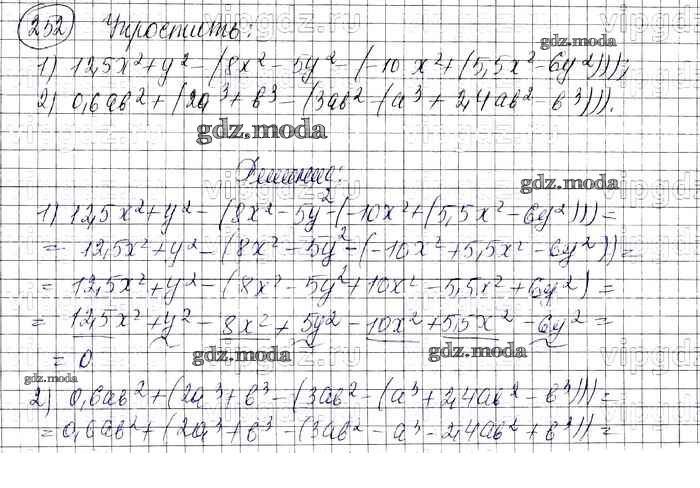 252 Упростить:
1) 12,5x² + y² - (8x² - 5y² - (-10x² + (5,5x² - 6y²)));
2) 0,6ab² + (2a³ + b³ - (3ab² - (a³ + 2,4ab² - b³))).
Решение:
1) 12,5x² + y² - (8x² - 5y² - (-10x² + (5,5x² - 6y²))) =
= 12,5x² + y² - (8x² - 5y² - (-10x² + 5,5x² - 6y²)) =
= 12,5x² + y² - (8x² - 5y² + 10x² - 5,5x² + 6y²) =
= 12,5x² + y² - 8x² + 5y² - 10x² + 5,5x² - 6y² =
= 0
2) 0,6ab² + (2a³ + b³ - (3ab² - (a³ + 2,4ab² - b³))) =
= 0,6ab² + (2a³ + b³ - (3ab² - a³ - 2,4ab² + b³)) =
gdz.moda
gdz.moda
gdz.moda
gdz.moda
gdz.moda
gdz.moda